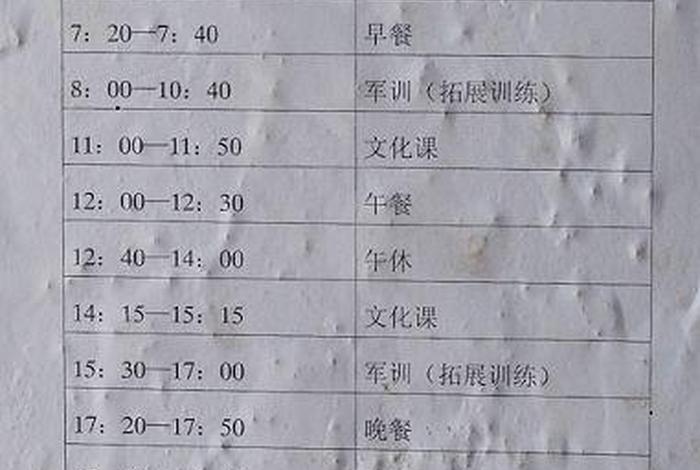 7：20—7：40 早餐
8：00—10：40 军训（拓展训练）
11：00—11：50 文化课
12：00—12：30 午餐
12：40—14：00 午休
14：15—15：15 文化课
15：30—17：00 军训（拓展训练）
17：20—17：50 晚餐